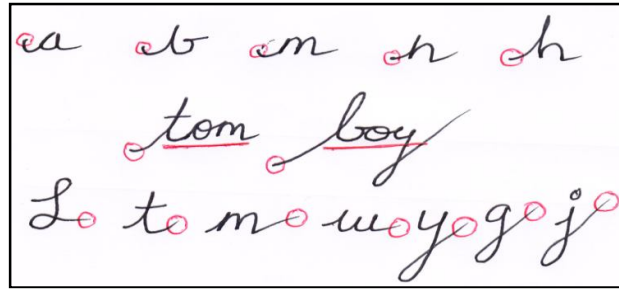 a b m n h
tom boy
L t m w y g j